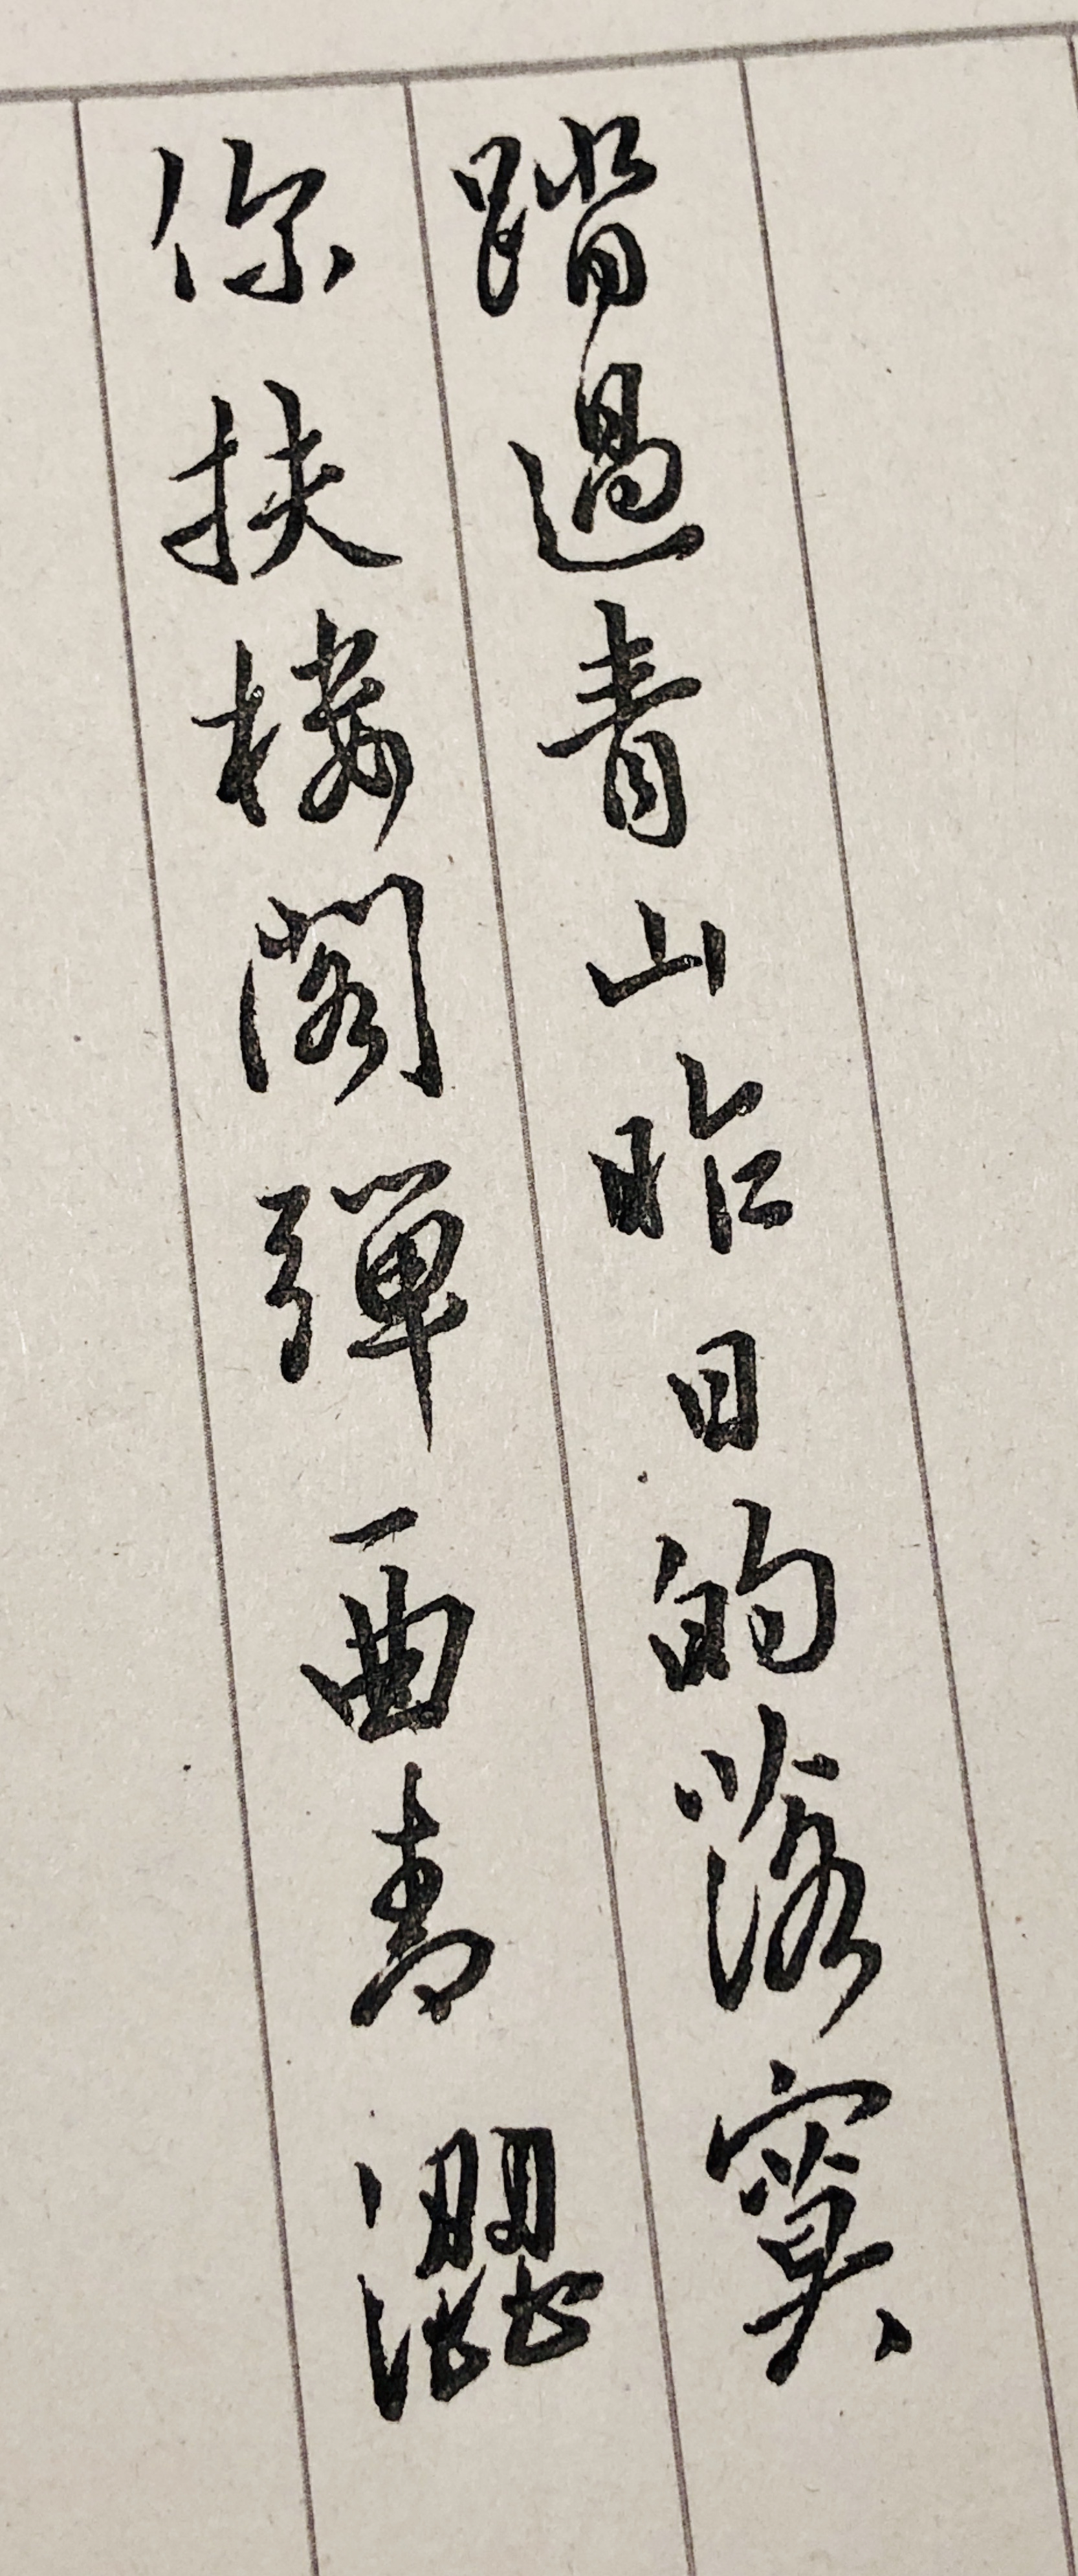 踏過青山昨日的落寞
你扶樓閣彈一曲青澀